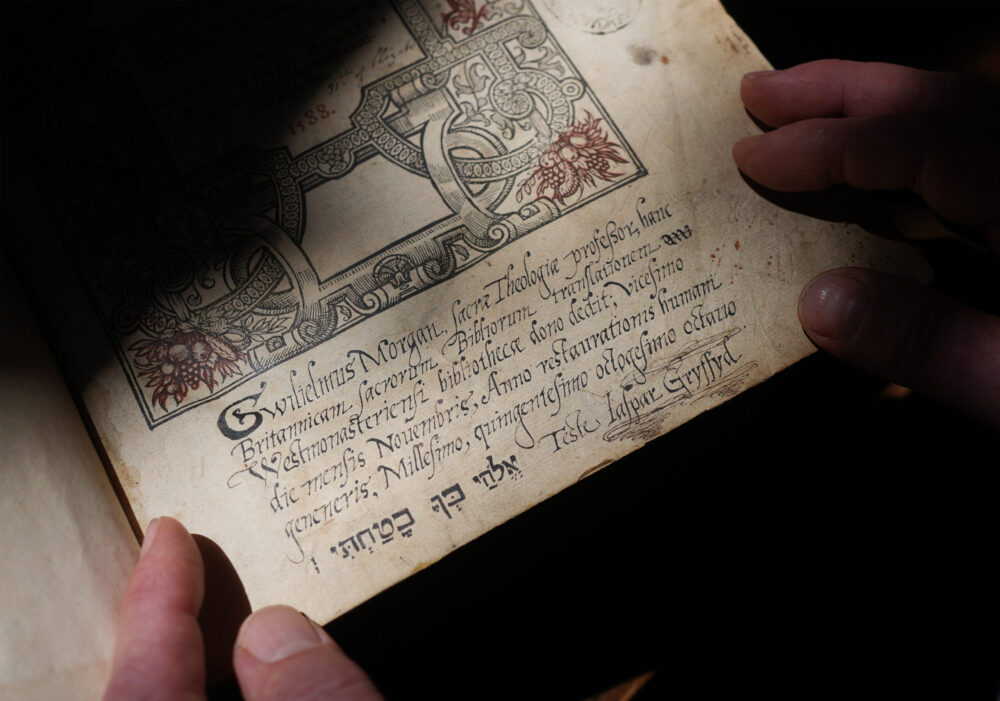 1588.
Gwilielmus Morgan, sacræ Theologiæ professor, hanc
Britannicam sacrorum Bibliorum translationem
Westmonasteriensi bibliothecæ dono dedit: Vicesimo
die mensis Novembris, Anno restaurationis humani
geneneris, Millesimo, quingentesimo octogesimo octavo.
Teste Iaspar Gryffyd.
אֱלֹהַי בְּךָ בָטַחְתִּי